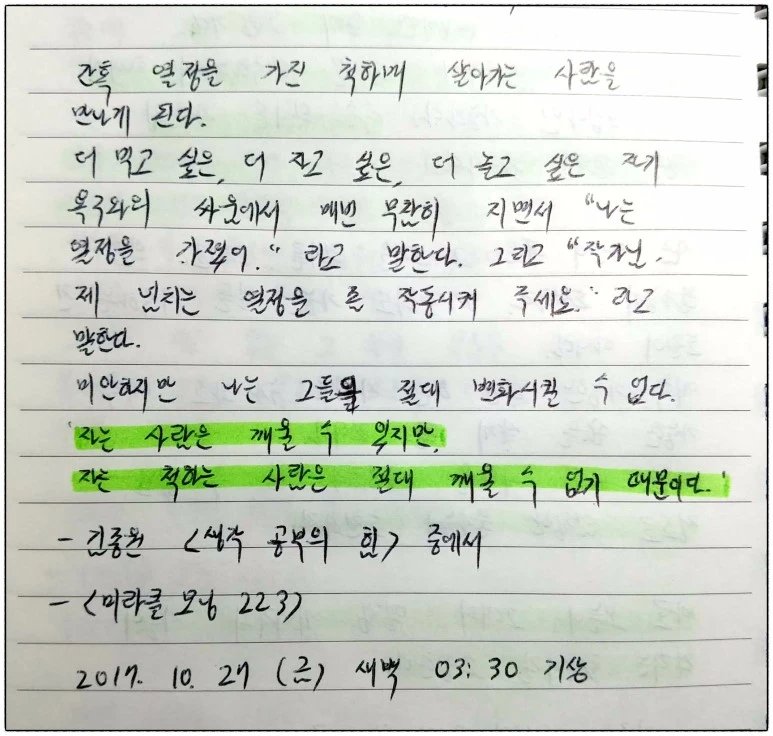 간혹 열정을 가진 척하며 살아가는 사람을
만나게 된다.
더 먹고 싶은, 더 자고 싶은, 더 놀고 싶은 자기
욕구와의 싸움에서 매번 무참히 지면서 "나는
열정을 가졌어." 라고 말한다. 그리고 "작가님,
제 넘치는 열정을 좀 작동시켜 주세요." 라고
말한다.
미안하지만 나는 그들을 절대 변화시킬 수 없다.
'자는 사람은 깨울 수 있지만,
자는 척하는 사람은 절대 깨울 수 없기 때문이다.'
- 김종원 <생각 공부의 힘> 중에서
- <미라클 모닝 223>
2017. 10. 27 (금) 새벽 03:30 기상